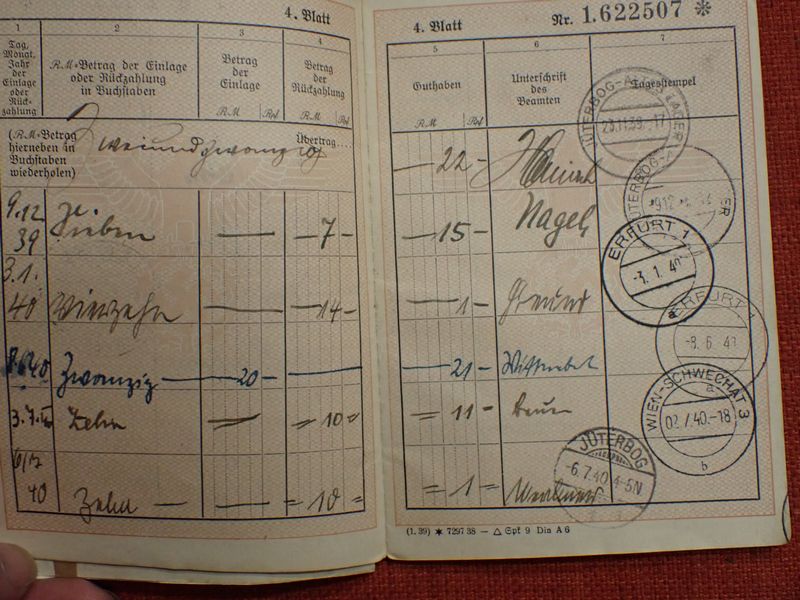 4. Blatt
1
2
3
4
Tag,
Monat,
Jahr
der
Einlage
oder
Rück-
zahlung
RM=Betrag der Einlage
oder Rückzahlung
in Buchstaben
Betrag
der
Einlage
RM Rpf
Betrag
der
Rückzahlung
RM Rpf
(RM=Betrag
hierneben in
Buchstaben
wiederholen)
Zweiundzwanzig
Übertrag
9.12
39
Sieben — — 7 —
3.1.
40
Vierzehn — — 14 —
8.6.40 Zwanzig — 20 — —
3.7.40 Zehn = = 10 =
6/7
40
Zehn — = 10 =
4. Blatt
Nr. 1.622507 *
5
6
7
Guthaben
RM Rpf
Unterschrift
des
Beamten
Tagesstempel
— 22 —
— 15 — Nagel
— 1 —
— 21 —
= 11 —
= 1 —
JÜTERBOG-ALTES LAGER
23.11.39.-17
JÜTERBOG-A
ERFURT 1
-3. 1. 40
a
ERFURT 1
-8. 6. 40
a
WIEN-SCHWECHAT 3
02.7.40.-18
b
JÜTERBOG
-6.7.40 4-5N
(1. 39) ✶ 7297 38 — △ Spk 9 Din A 6